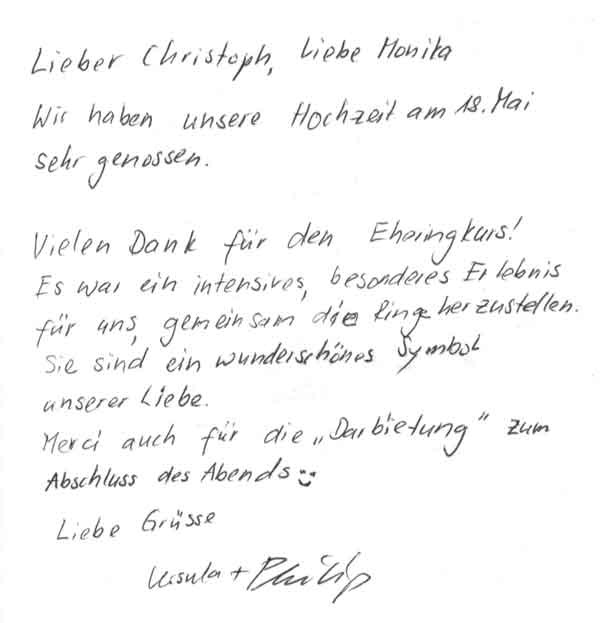 Lieber Christoph, Liebe Monika
Wir haben unsere Hochzeit am 18. Mai
sehr genossen.
Vielen Dank für den Eheringkurs!
Es war ein intensives, besonderes Erlebnis
für uns, gemeinsam die Ringe herzustellen.
Sie sind ein wunderschönes Symbol
unserer Liebe.
Merci auch für die „Darbietung" zum
Abschluss des Abends
Liebe Grüsse
Ursula + Philip